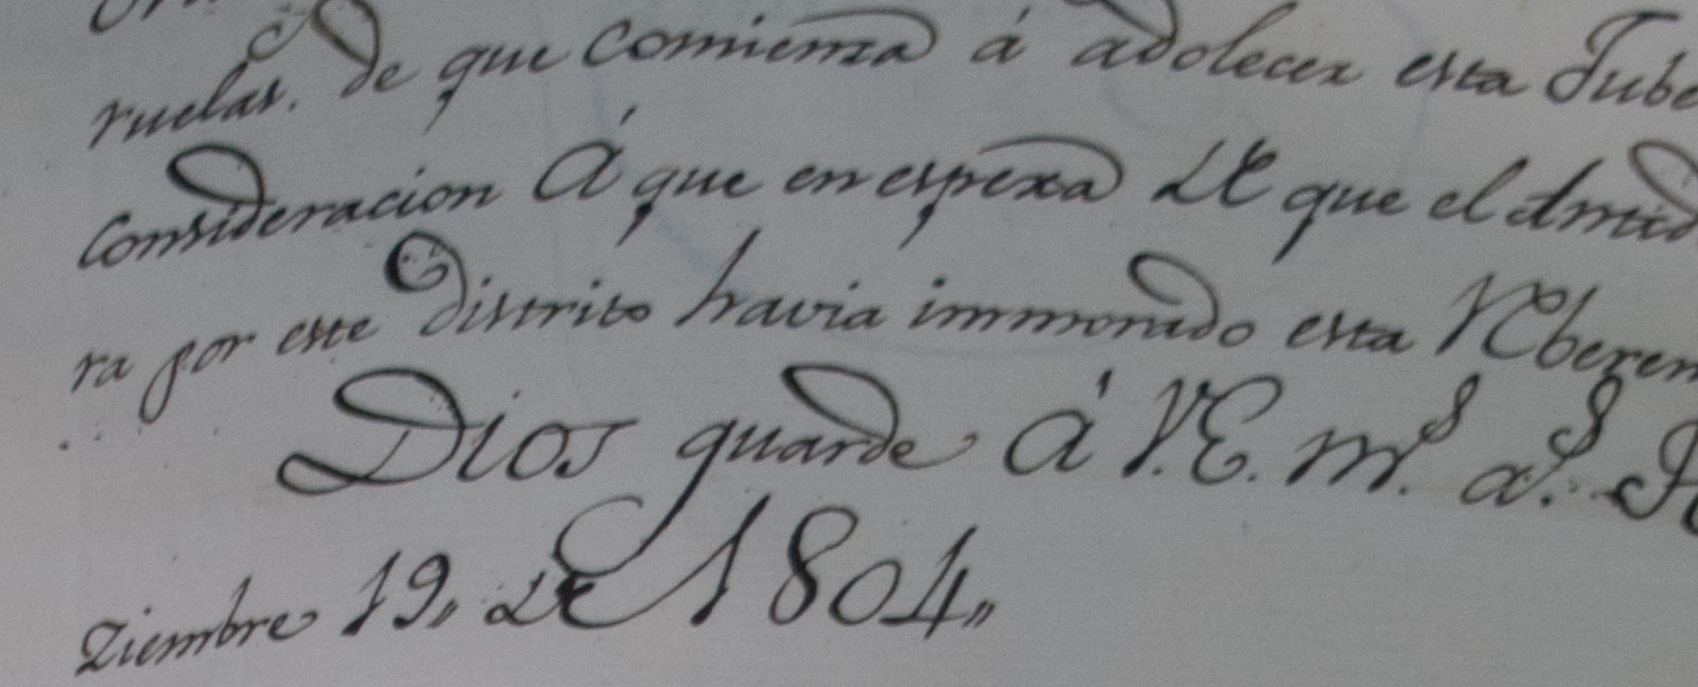 ruelas. de que comienza á adolecer esta Jube
consideracion Á que en espera de que el
ra por este Distrito havia immorado esta
Dios guarde Á V.E. m.s a.s
ziembre 19,, de 1804,,